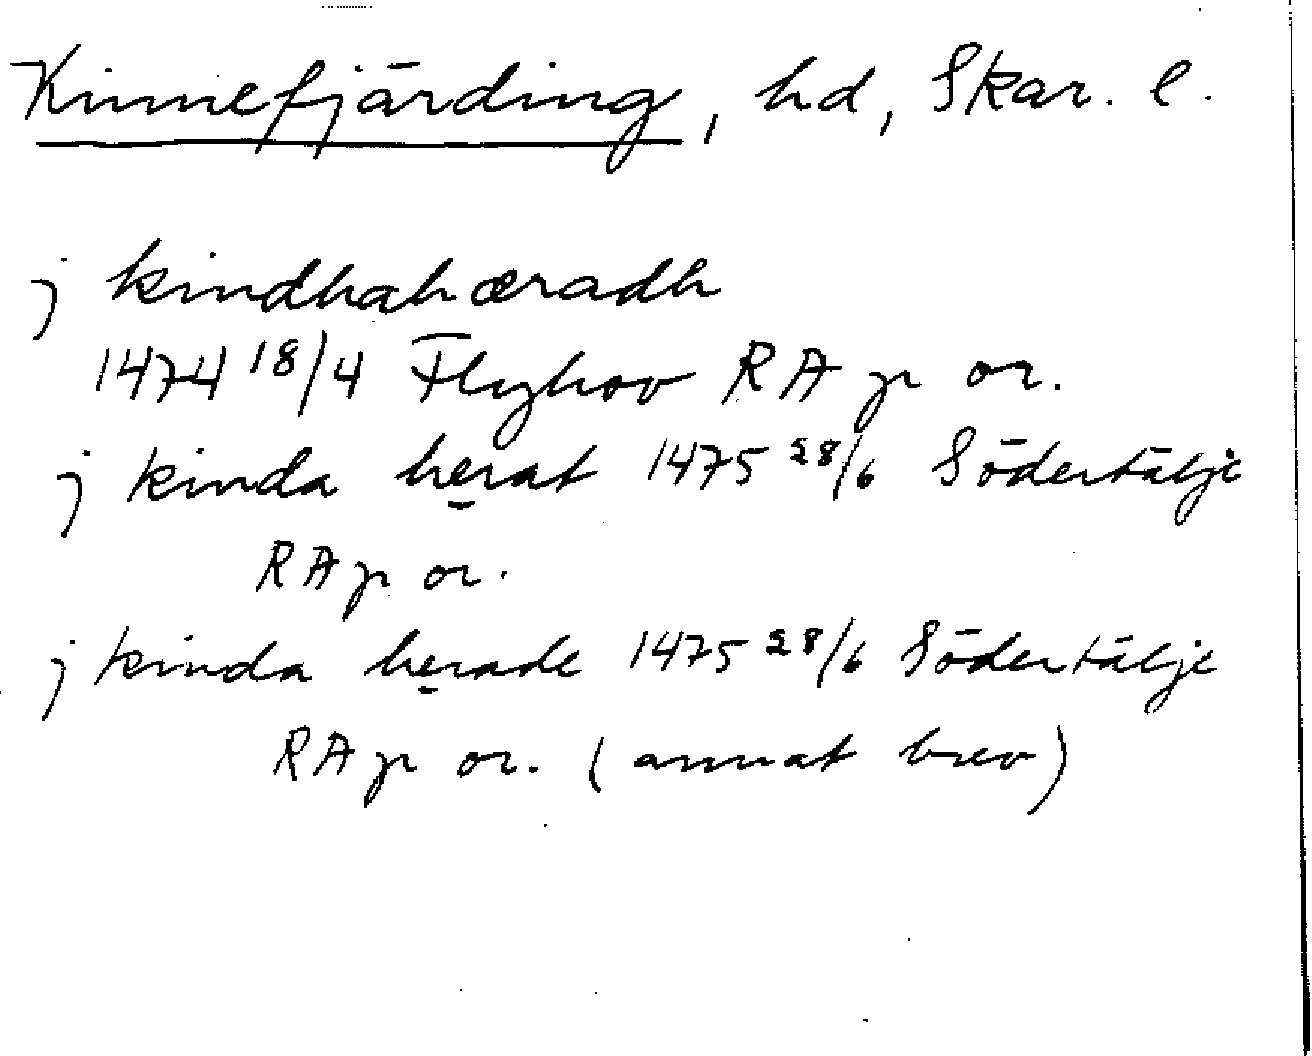 Kinnefjärding, hd, Skar. l.
j kindhahæradh
1474 18/4 Flyhov RA p or.
j kinda herat 1475 28/6 Södertälje
RA p or.
j kinda herade 1475 28/6 Södertälje
RA p or. (annat brev)